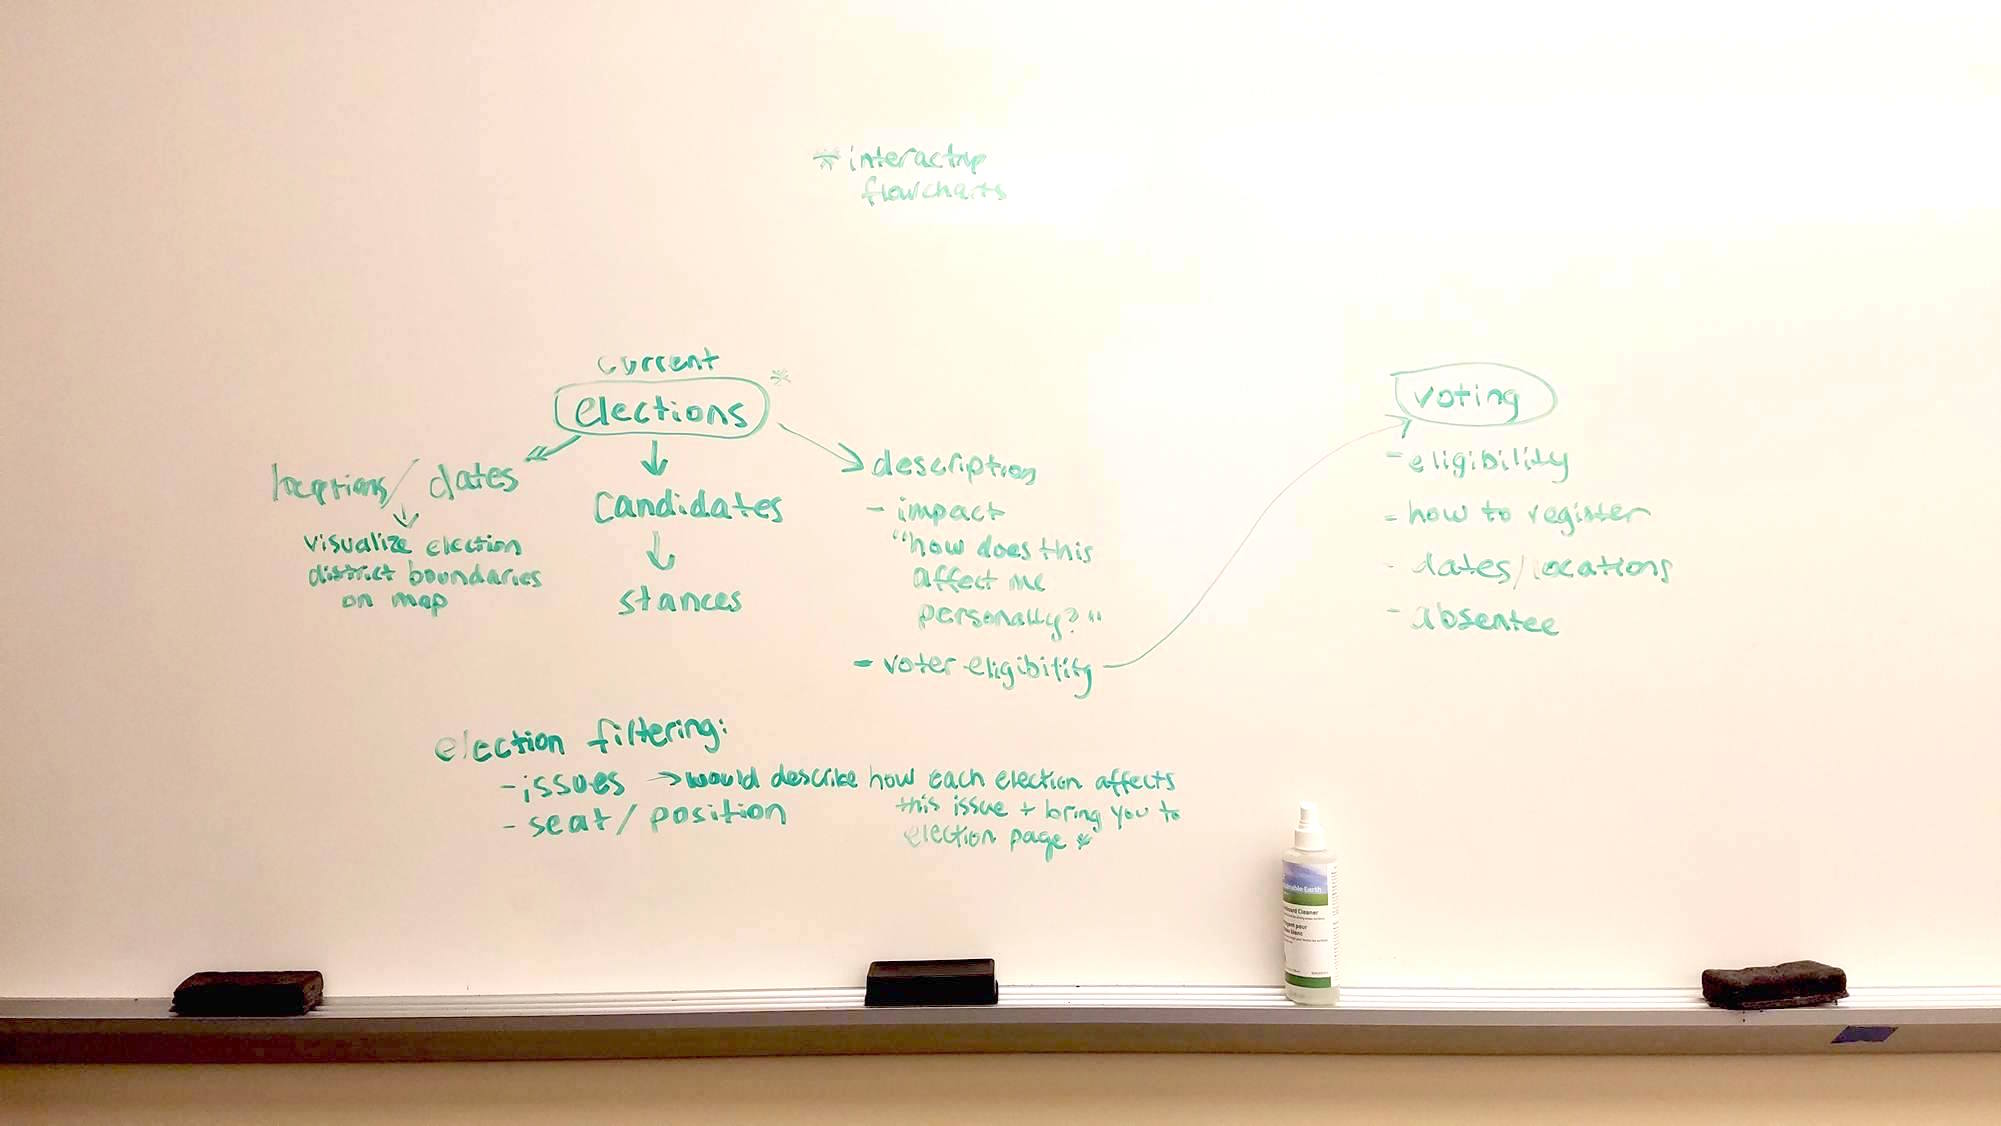 * interactive
flowcharts
current
elections *
locations/dates
visualize election
district boundaries
on map
candidates
stances
description
- impact
"how does this
affect me
personally?"
- voter eligibility
voting
- eligibility
- how to register
- dates/locations
- absentee
election filtering:
- issues → would describe how each election affects
this issue + bring you to
election page *
- seat/position
Earth
Cleaner